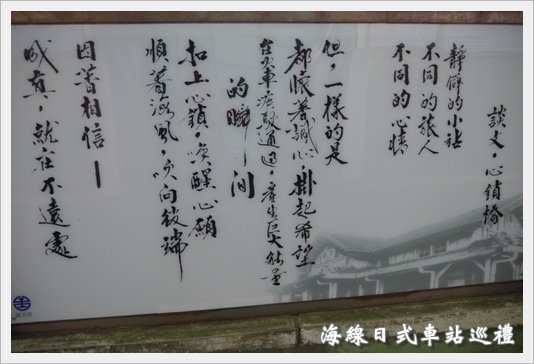 談文，心鎖橋
靜僻的小站
不同的旅人
不同的心情
但，一樣的是
都懷著誠心，掛起希望
在火車疾駛通過，產生巨大能量
的瞬間
扣上心鎖，喚醒心願
順著海風，吹向彼端
因著相信—
成真，就在不遠處
海線日式車站巡禮